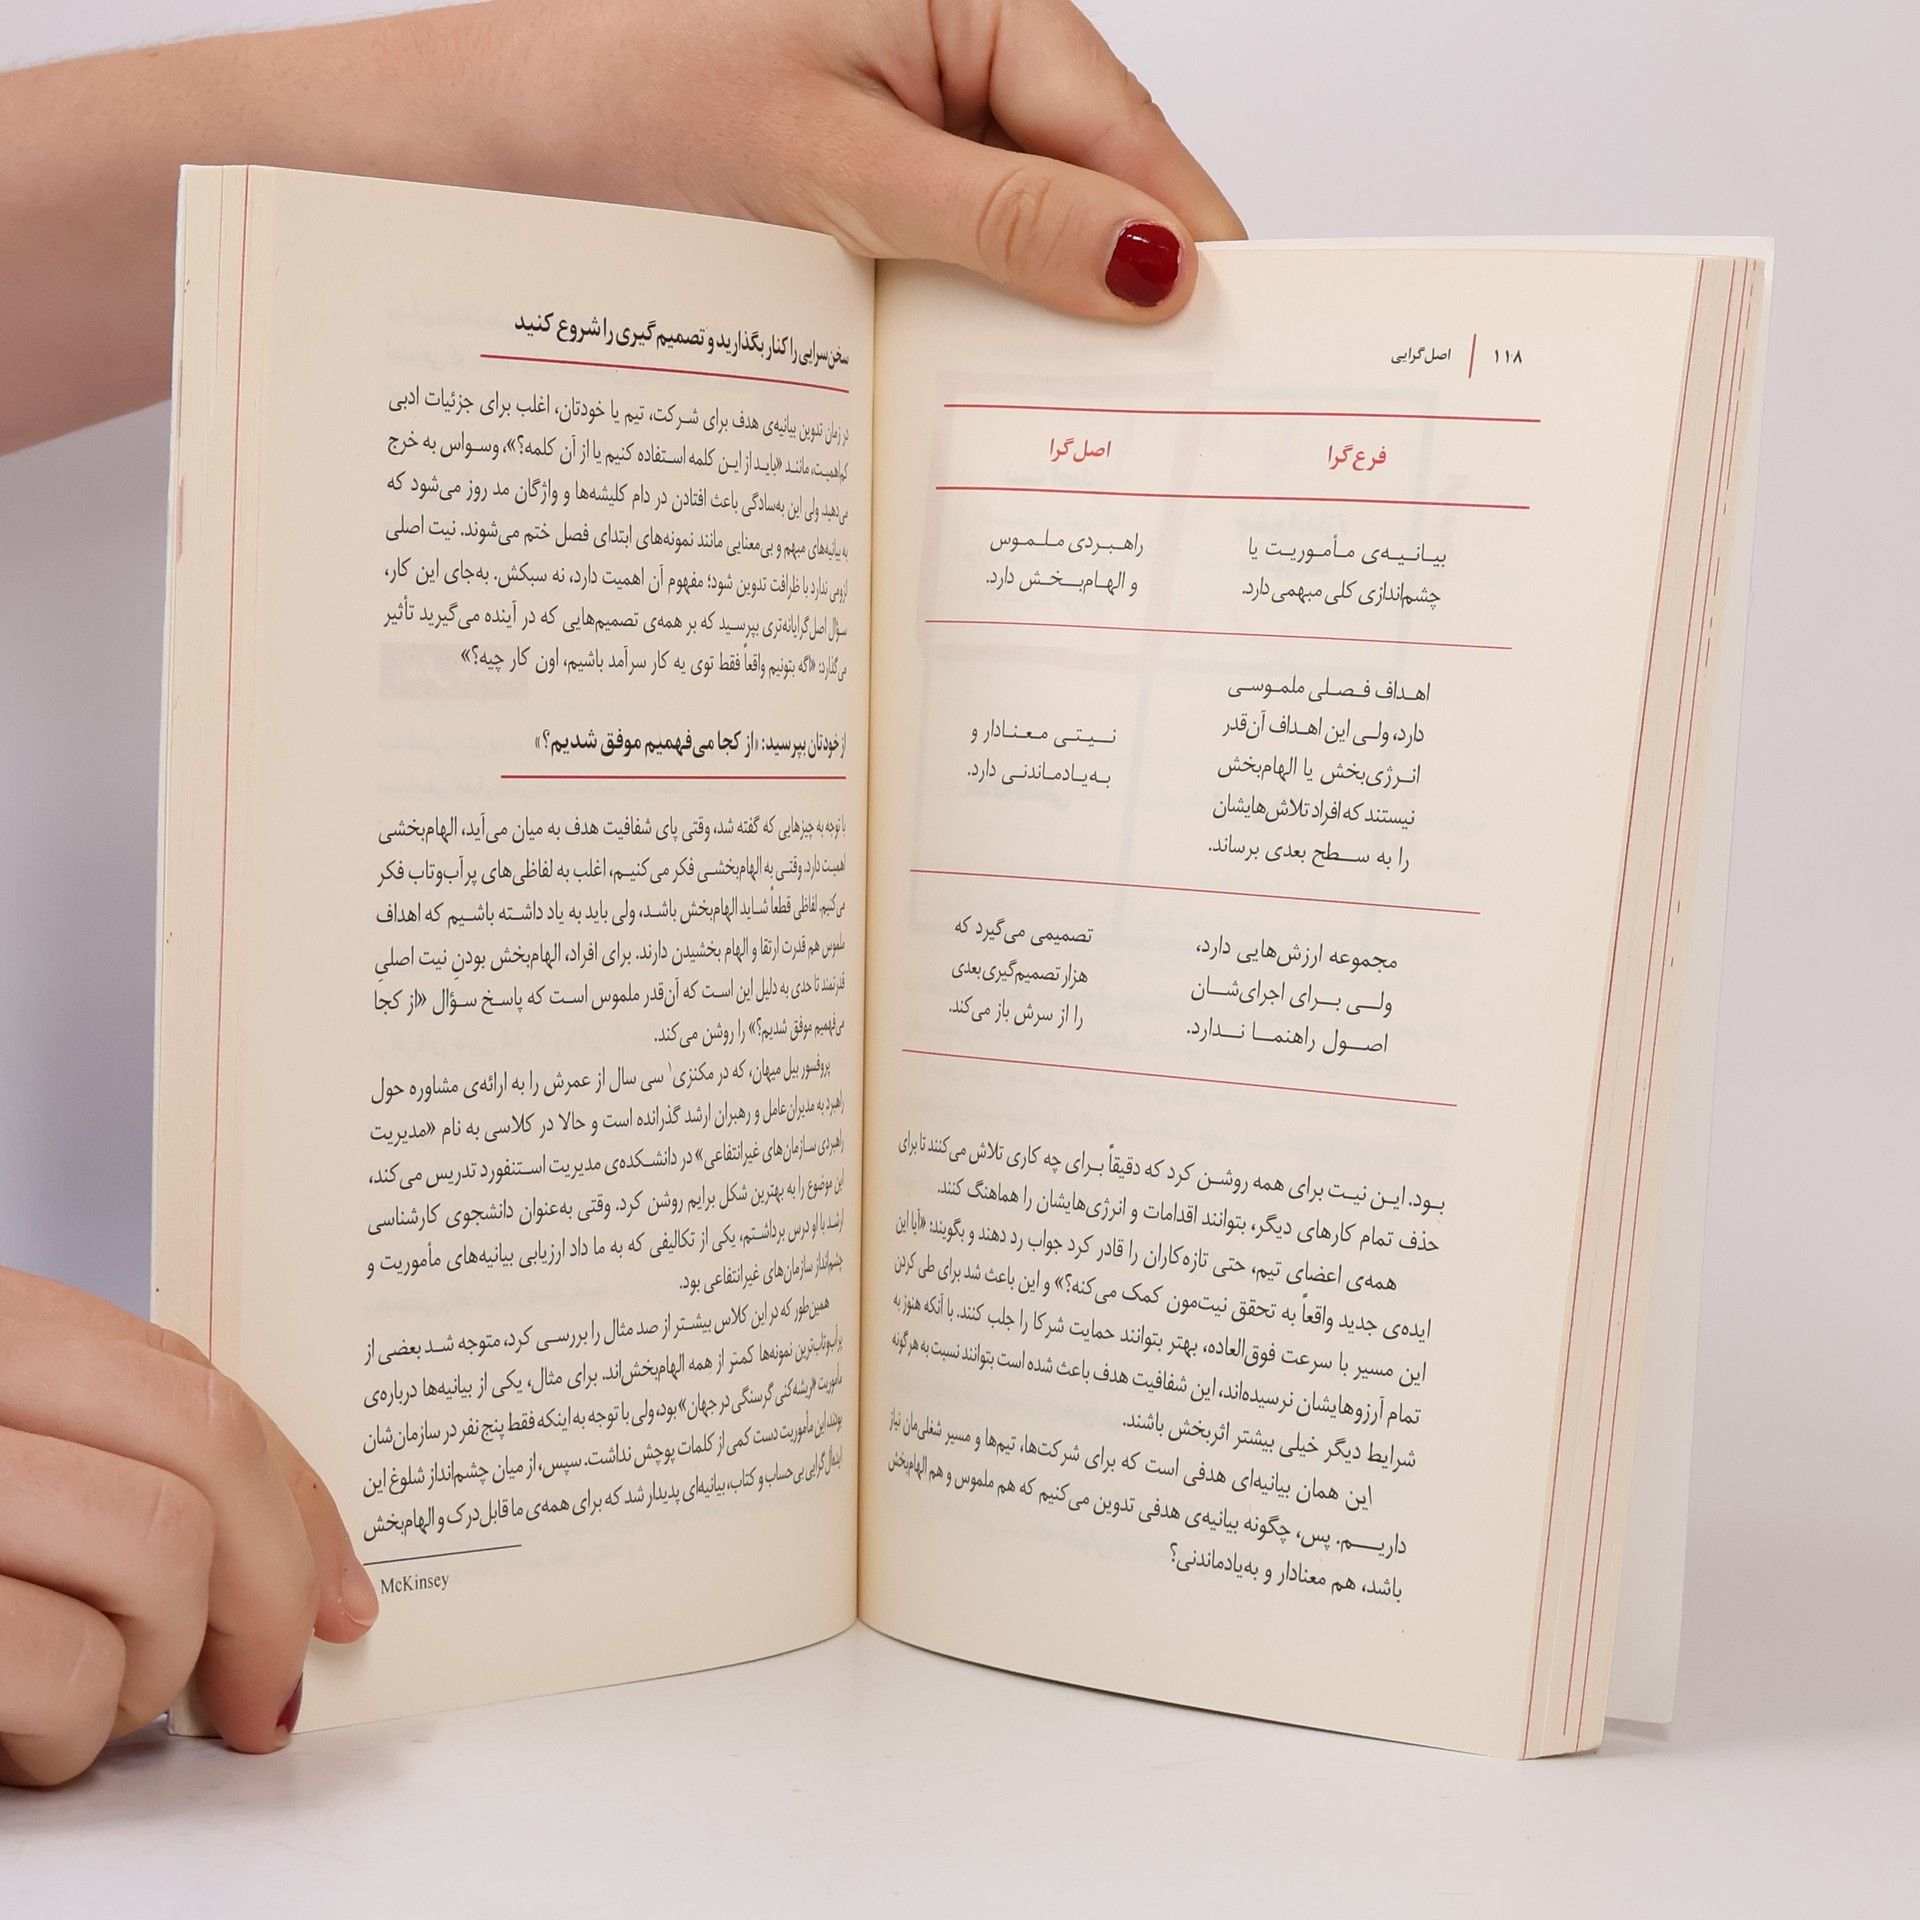 ۱۱۸ | اصل‌گرایی
فرع‌گرا
اصل‌گرا
بیانیه‌ی مأموریت یا
چشم‌اندازی کلی مبهمی دارد.
راهبردی ملموس
و الهام‌بخش دارد.
اهداف فصلی ملموسی
دارد، ولی این اهداف آن‌قدر
انرژی‌بخش یا الهام‌بخش
نیستند که افراد تلاش‌هایشان
را به سطح بعدی برساند.
نیتی معنادار و
به‌یادماندنی دارد.
مجموعه ارزش‌هایی دارد،
ولی برای اجرای‌شان
اصول راهنما ندارد.
تصمیمی می‌گیرد که
هزار تصمیم‌گیری بعدی
را از سرش باز می‌کند.
بود. این نیت برای همه روشن کرد که دقیقاً برای چه کاری تلاش می‌کنند تا برای
حذف تمام کارهای دیگر، بتوانند اقدامات و انرژی‌هایشان را هماهنگ کنند.
همه‌ی اعضای تیم، حتی تازه‌کاران را قادر کرد جواب رد دهند و بگویند: «آیا این
ایده‌ی جدید واقعاً به تحقق نیت‌مون کمک می‌کنه؟» و این باعث شد برای طی کردن
این مسیر با سرعت فوق‌العاده، بهتر بتوانند حمایت شرکا را جلب کنند. با آنکه هنوز به
تمام آرزوهایشان نرسیده‌اند، این شفافیت هدف باعث شده است بتوانند نسبت به هرگونه
شرایط دیگر خیلی بیشتر اثربخش باشند.
این همان بیانیه‌ای هدفی است که برای شرکت‌ها، تیم‌ها و مسیر شغلی‌مان نیاز
داریم. پس، چگونه بیانیه‌ی هدفی تدوین می‌کنیم که هم ملموس و هم الهام‌بخش
باشد، هم معنادار و به‌یادماندنی؟
سخن‌سرایی را کنار بگذارید و تصمیم‌گیری را شروع کنید
در زمان تدوین بیانیه‌ی هدف برای شرکت، تیم یا خودتان، اغلب برای جزئیات ادبی
کم‌اهمیت، مانند «باید از این کلمه استفاده کنیم یا از آن کلمه؟»، وسواس به خرج
می‌دهید. ولی این به‌سادگی باعث افتادن در دام کلیشه‌ها و واژگان مد روز می‌شود که
به بیانیه‌های مبهم و بی‌معنایی مانند نمونه‌های ابتدای فصل ختم می‌شوند. نیت اصلی
لزومی ندارد با ظرافت تدوین شود؛ مفهوم آن اهمیت دارد، نه سبکش. به‌جای این کار،
سؤال اصل‌گرایانه‌تری بپرسید که بر همه‌ی تصمیم‌هایی که در آینده می‌گیرید تأثیر
می‌گذارد: «اگه بتونیم واقعاً فقط توی یه کار سرآمد باشیم، اون کار چیه؟»
از خودتان بپرسید: «از کجا می‌فهمیم موفق شدیم؟»
با توجه به چیزهایی که گفته شد، وقتی پای شفافیت هدف به میان می‌آید، الهام‌بخشی
اهمیت دارد. وقتی به الهام‌بخشی فکر می‌کنیم، اغلب به لفاظی‌های پرآب‌وتاب فکر
می‌کنیم. لفاظی قطعاً شاید الهام‌بخش باشد، ولی باید به یاد داشته باشیم که اهداف
ملموس هم قدرت ارتقا و الهام بخشیدن دارند. برای افراد، الهام‌بخش بودنِ نیت اصلیِ
قدرتمند تا حدی به دلیل این است که آن‌قدر ملموس است که پاسخ سؤال «از کجا
می‌فهمیم موفق شدیم؟» را روشن می‌کند.
پروفسور بیل میهان، که در مکنزی۱ سی سال از عمرش را به ارائه‌ی مشاوره حول
راهبرد به مدیران‌عامل و رهبران ارشد گذرانده است و حالا در کلاسی به نام «مدیریت
راهبردی سازمان‌های غیرانتفاعی» در دانشکده‌ی مدیریت استنفورد تدریس می‌کند،
این موضوع را به بهترین شکل برایم روشن کرد. وقتی به‌عنوان دانشجوی کارشناسی
ارشد با او درس برداشتم، یکی از تکالیفی که به ما داد ارزیابی بیانیه‌های مأموریت و
چشم‌انداز سازمان‌های غیرانتفاعی بود.
همین‌طور که در این کلاس بیشتر از صد مثال را بررسی کرد، متوجه شد بعضی از
پرآب‌وتاب‌ترین نمونه‌ها کمتر از همه الهام‌بخش‌اند. برای مثال، یکی از بیانیه‌ها درباره‌ی
مأموریت «ریشه‌کنی گرسنگی در جهان» بود، ولی با توجه به اینکه فقط پنج نفر در سازمان‌شان
بودند، این مأموریت دست کمی از کلمات پوچش نداشت. سپس، از میان چشم‌انداز شلوغ این
ایدئال‌گرایی بی‌حساب و کتاب، بیانیه‌ای پدیدار شد که برای همه‌ی ما قابل‌درک و الهام‌بخش
McKinsey